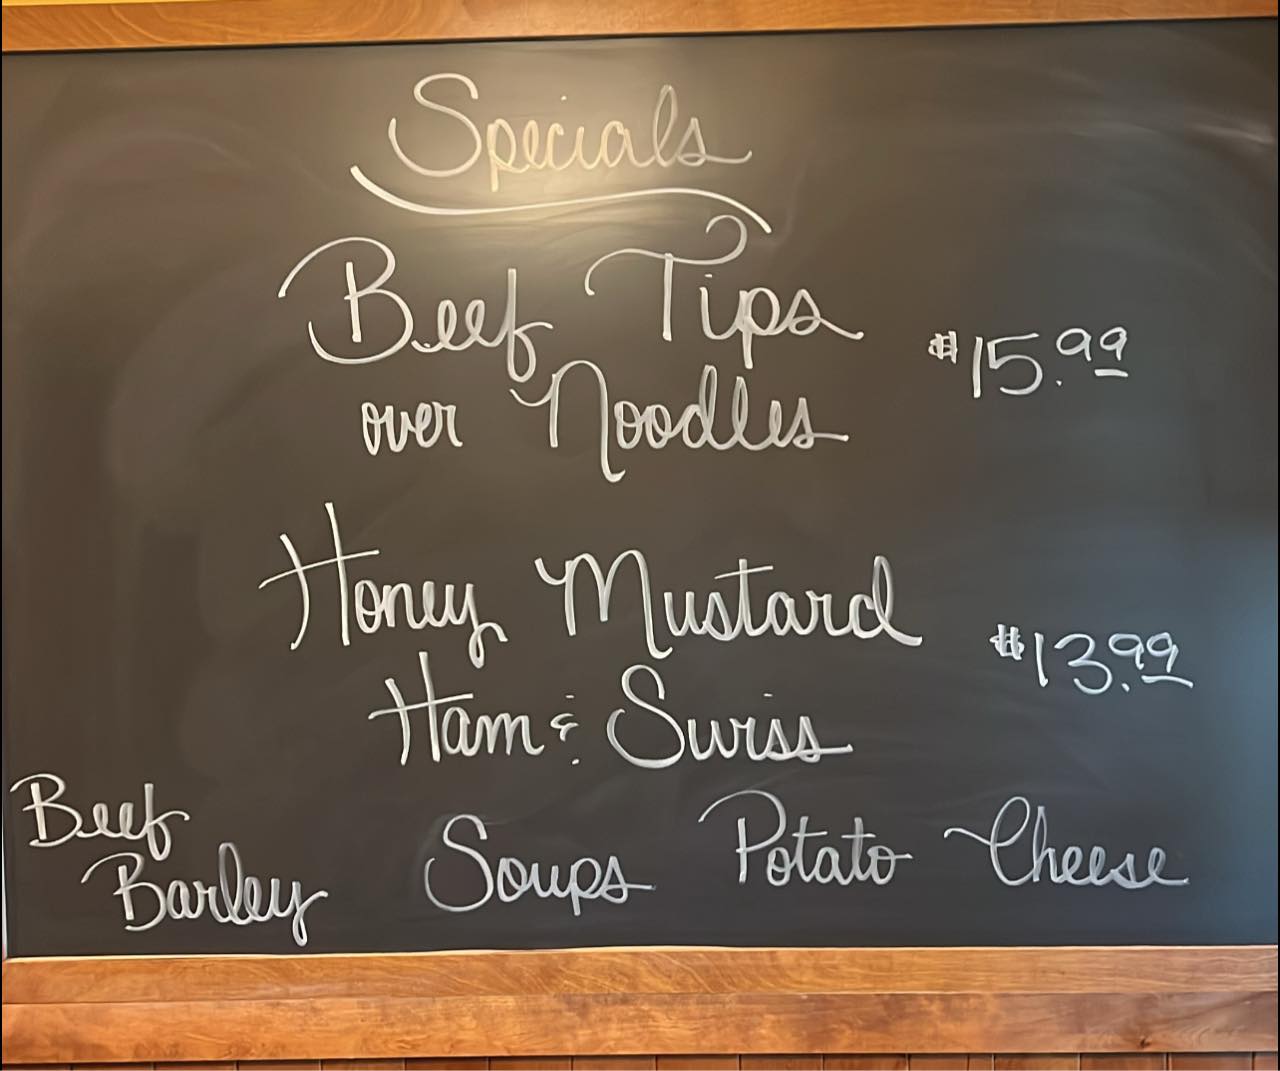 Specials
Beef Tips
over Noodles
$15.99
Honey Mustard
Ham & Swiss
$13.99
Beef
Barley
Soups
Potato Cheese